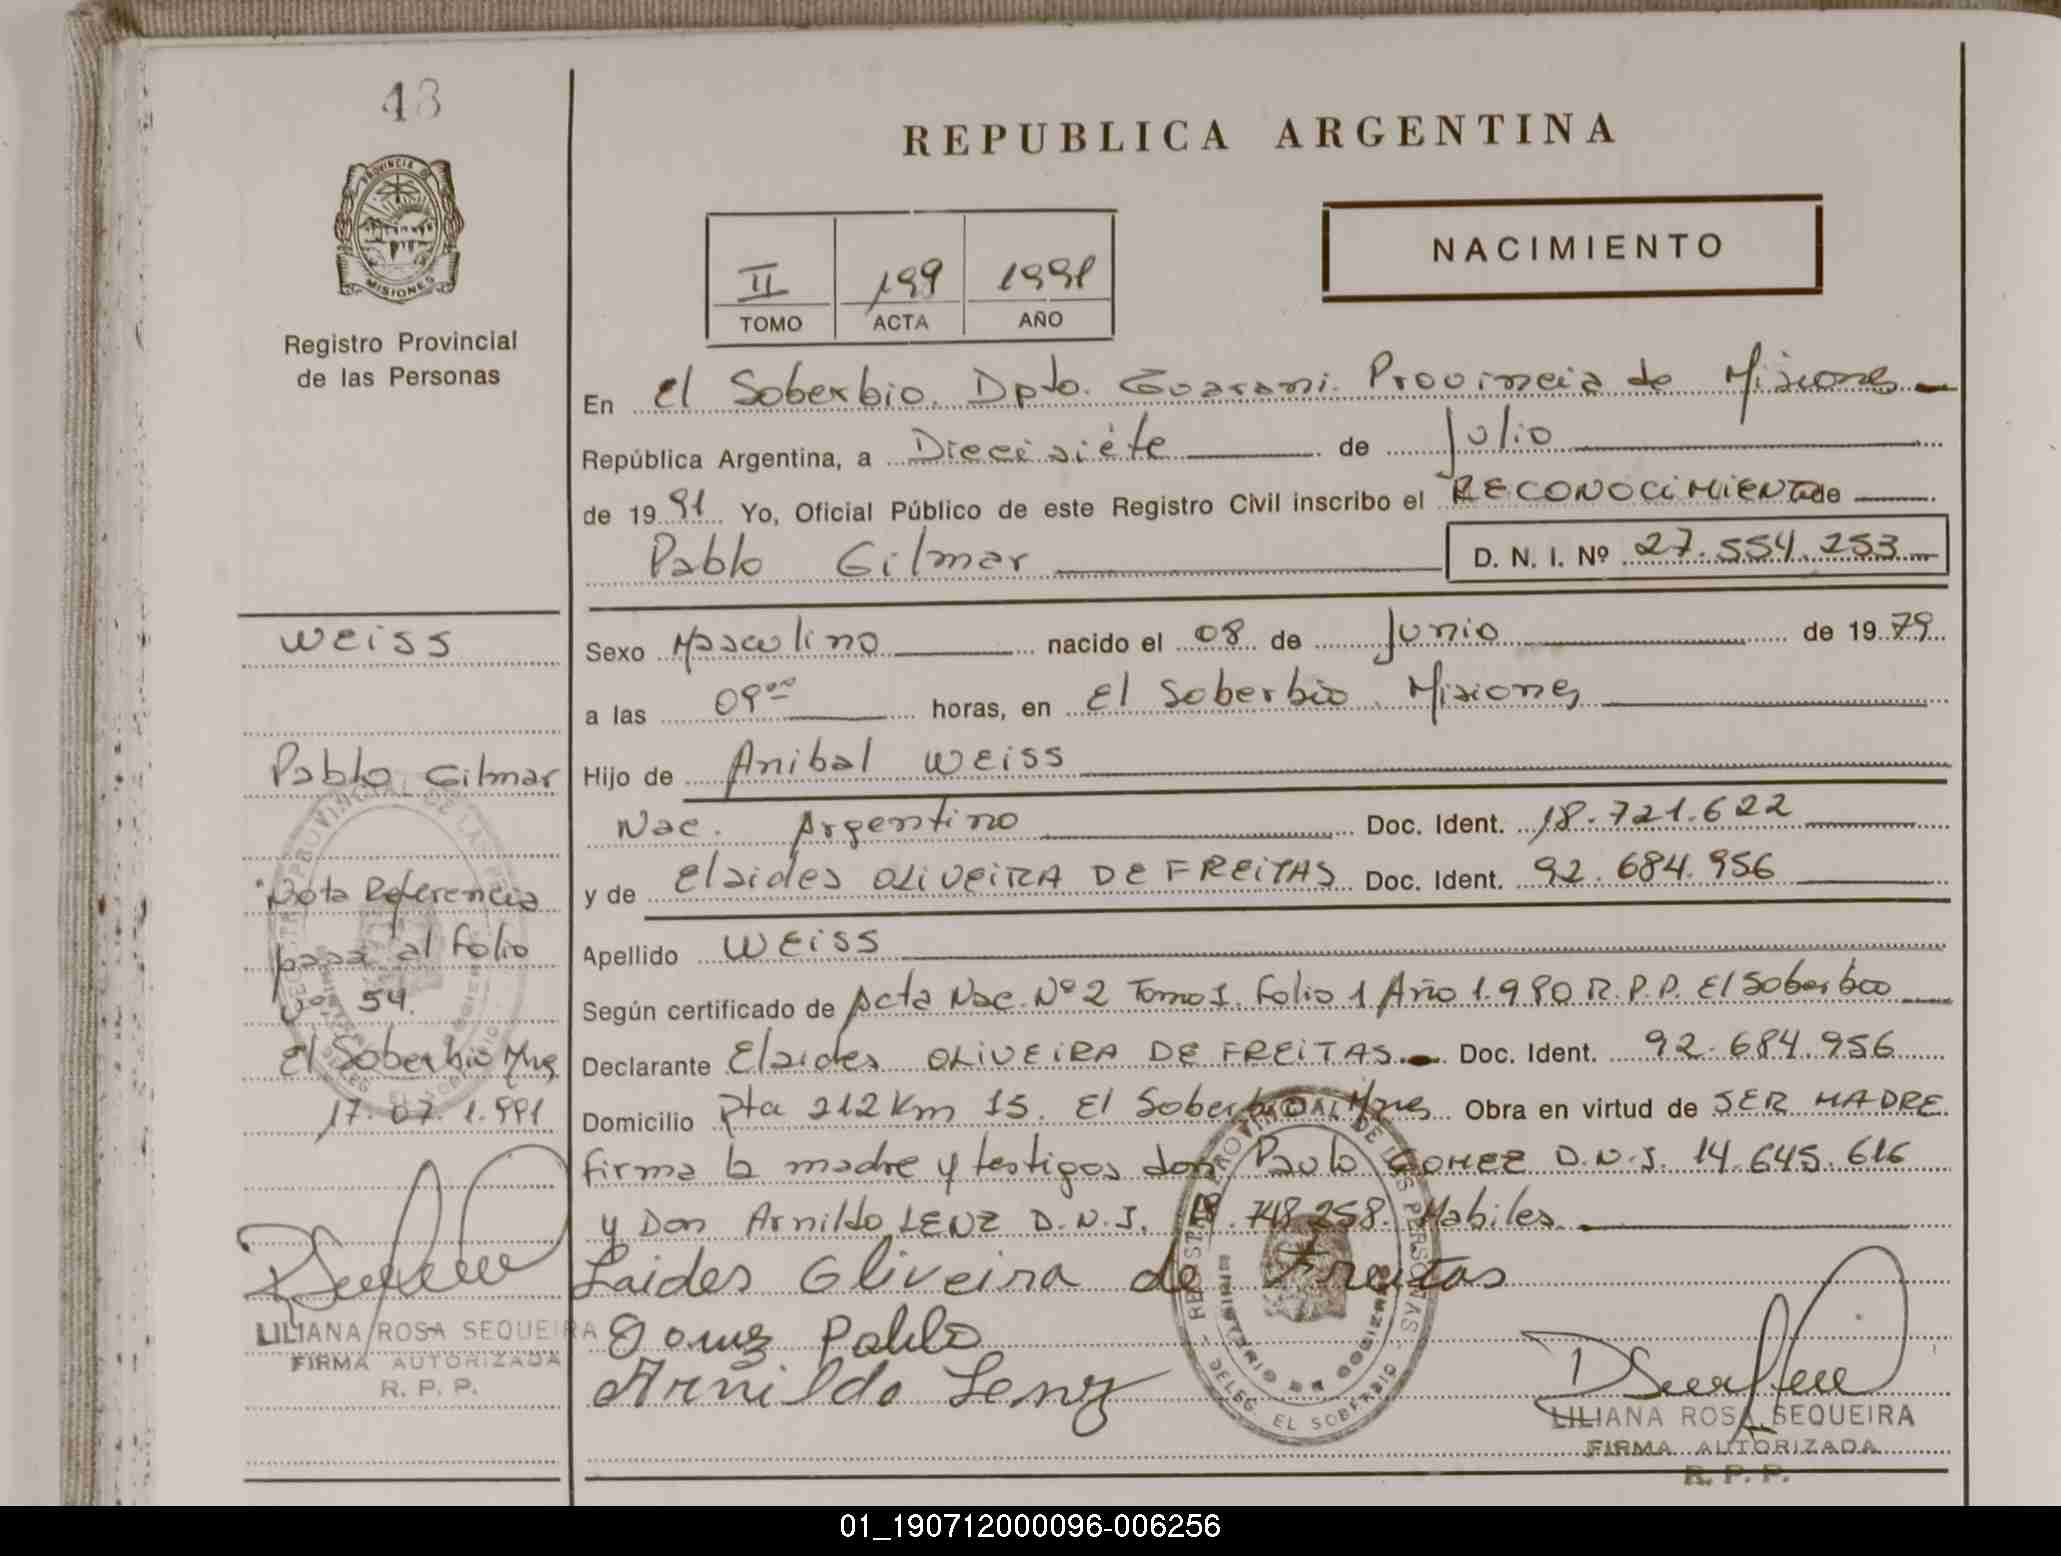 48
PROVINCIA DE
MISIONES
Registro Provincial
de las Personas
REPUBLICA ARGENTINA
II 199 1991
TOMO ACTA AÑO
NACIMIENTO
En El Soberbio. Dpto. Guarani. Provincia de Misiones
República Argentina, a Diecisiete de Julio
de 19 91 Yo, Oficial Público de este Registro Civil inscribo el RECONOCIMIENTO de
Pablo Gilmar D. N. I. Nº 27.554.253
Sexo Masculino nacido el 08 de Junio de 19 79
a las 09 00 horas, en El Soberbio Misiones
Hijo de Anibal WEISS
Nac. Argentino Doc. Ident. 18.721.622
y de Elaides OLIVEIRA DE FREITAS Doc. Ident. 92.684.956
Apellido WEISS
Según certificado de Acta Nac. Nº 2 Tomo I. Folio 1 Año 1.980 R.P.P. El Soberbio
Declarante Elaides OLIVEIRA DE FREITAS Doc. Ident. 92.684.956
Domicilio Rta 212 Km 15. El Soberbio Mnes Obra en virtud de SER MADRE
firma la madre y testigos don Paulo GOMEZ D.N.I. 14.645.616
y Don Arnildo LENZ D.N.I. 18.748.258. Habiles
Laides Oliveira de Freitas
Gomez Pablo
Arnildo Lenz
REGISTRO PROVINCIAL DE LAS PERSONAS
DELEG. EL SOBERBIO
LILIANA ROSA SEQUEIRA
FIRMA AUTORIZADA
R. P. P.
WEISS
Pablo Gilmar
Nota Referencia
pasa al folio
Nº 54.
El Soberbio Mnes
17.07.1.991
LILIANA ROSA SEQUEIRA
FIRMA AUTORIZADA
R. P. P.
01_190712000096-006256